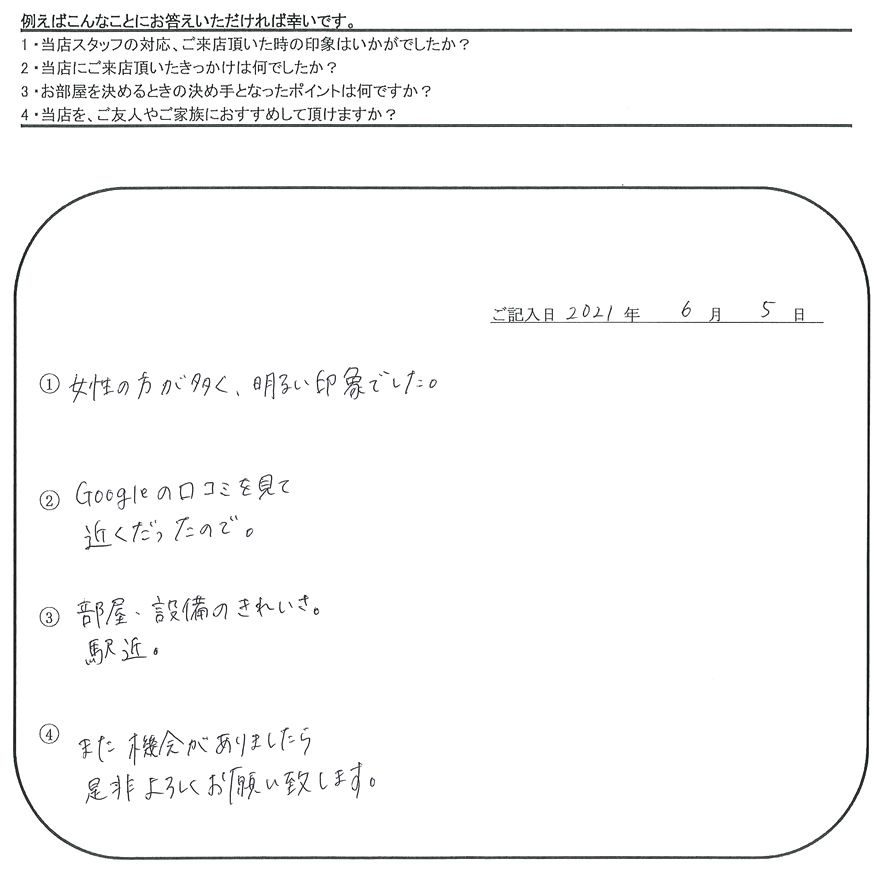 例えばこんなことにお答えいただければ幸いです。
1・当店スタッフの対応、ご来店頂いた時の印象はいかがでしたか？
2・当店にご来店頂いたきっかけは何でしたか？
3・お部屋を決めるときの決め手となったポイントは何ですか？
4・当店を、ご友人やご家族におすすめして頂けますか？
ご記入日 2021 年 6 月 5 日
① 女性の方が多く、明るい印象でした。
② Googleの口コミを見て
近くだったので。
③ 部屋・設備のきれいさ。
駅近。
④ また機会がありましたら
是非よろしくお願い致します。